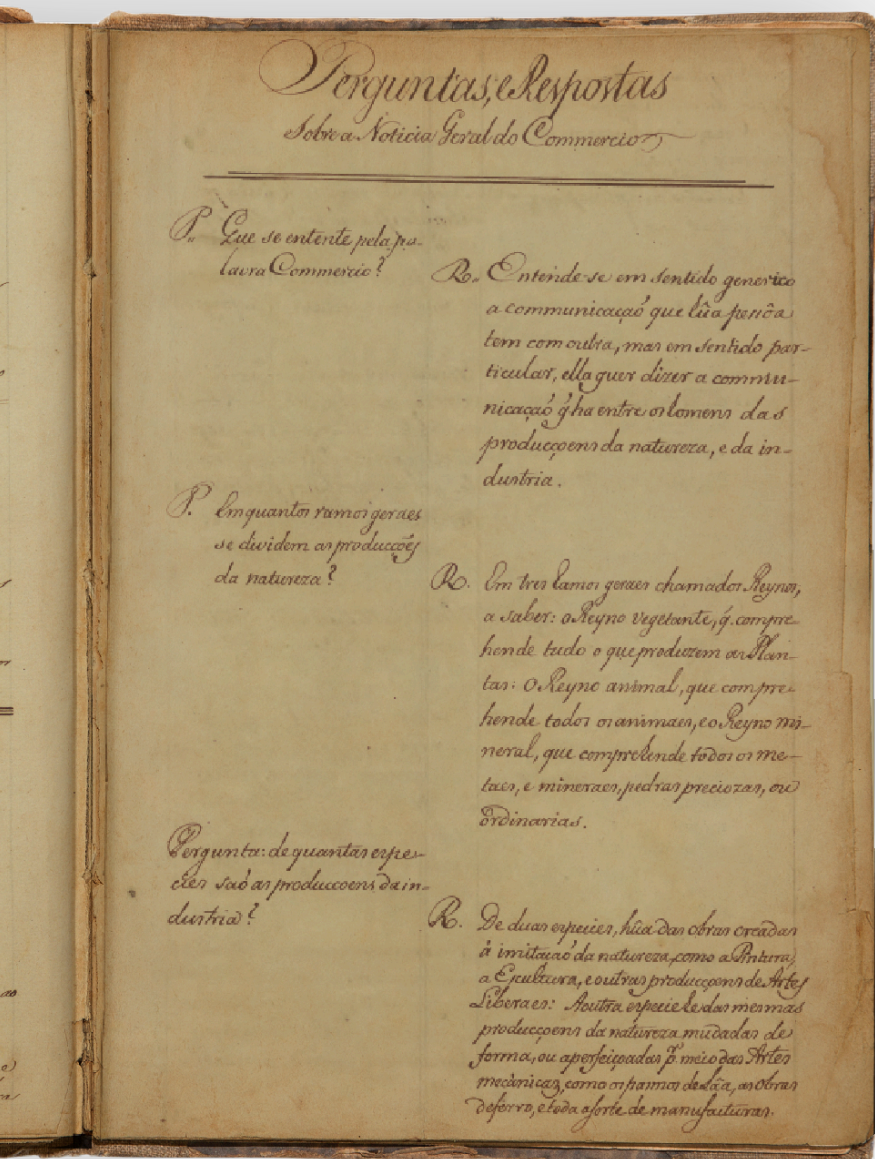 Perguntas, e Respostas
Sobre a Noticia Geral do Commercio
P. Que se entente pela pa-
lavra Commercio?
R. Entende-se em sentido generico
a communicaçaõ que hũa pessôa
tem com outra, mas em sentido par-
ticular, ella quer dizer a commu-
nicaçaõ q̃ ha entre os homens das
producçoens da natureza, e da in-
dustria.
P. Em quantos ramos geraes
se dividem as producçoẽs
da natureza?
R. Em tres ramos geraes chamados Reynos,
a saber: o Reyno vegetante, q̃. compre-
hende tudo o que produzem as Plan-
tas: O Reyno animal, que compre-
hende todos os animaes, e o Reyno mi-
neral, que comprehende todos os me-
taes, e mineraes, pedras preciozas, ou
ordinarias.
Pergunta: de quantas espe-
cies saõ as producçoens da in-
dustria?
R. De duas especies, hũa das obras creadas
á imitaçaõ da natureza, como a Pintura,
a Escultura, e outras producçoens de Artes
Liberaes: A outra especie he das mesmas
producçoens da natureza mudadas de
forma, ou aperfeiçoadas p̃. meio das Artes
mecânicas, como os pannos de Lãa, as obras
de ferro, e toda a sorte de manufacturas.